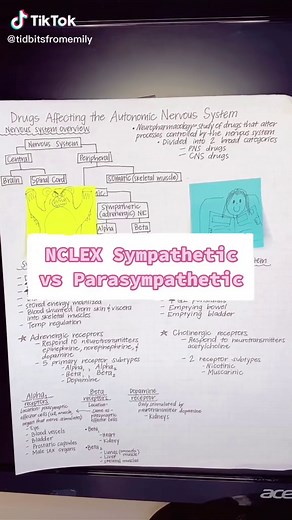 TikTok
@tidbitsfromemily
Drugs Affecting the Autonomic Nervous System
Nervous system overview
Nervous System
Central
Peripheral
Brain
Spinal Cord
(skeletal muscle)
• Neuropharmacology: study of drugs that alter
processes controlled by the nervous system
• Divided into 2 broad categories
- PNS drugs
- CNS drugs
Sympathetic
(adrenergic)
Alpha
Beta
NCLEX Sympathetic
vs Parasympathetic
stored energy mobilized
• Blood shunted from skin & viscera
into skeletal muscles
• Temp regulation
• Emptying bowel
• Emptying bladder
☆ Adrenergic receptors
• Respond to neurotransmitters
epinephrine, norepinephrine, &
dopamine
• 5 primary receptor subtypes
- Alpha1, Alpha2
- Beta1, Beta2
- Dopamine
☆ Cholinergic receptors
• Respond to neurotransmitters
acetylcholine
• 2 receptor subtypes
- Nicotinic
- Muscarinic
Alpha
receptors
- Eye
- Blood vessels
- Bladder
- Prostatic capsules
- Male sex organs
Beta
receptors
Location:
- Heart
- Kidney
- Liver
Dopamine
receptor
Only stimulated by
neurotransmitter dopamine
- Kidneys
acer